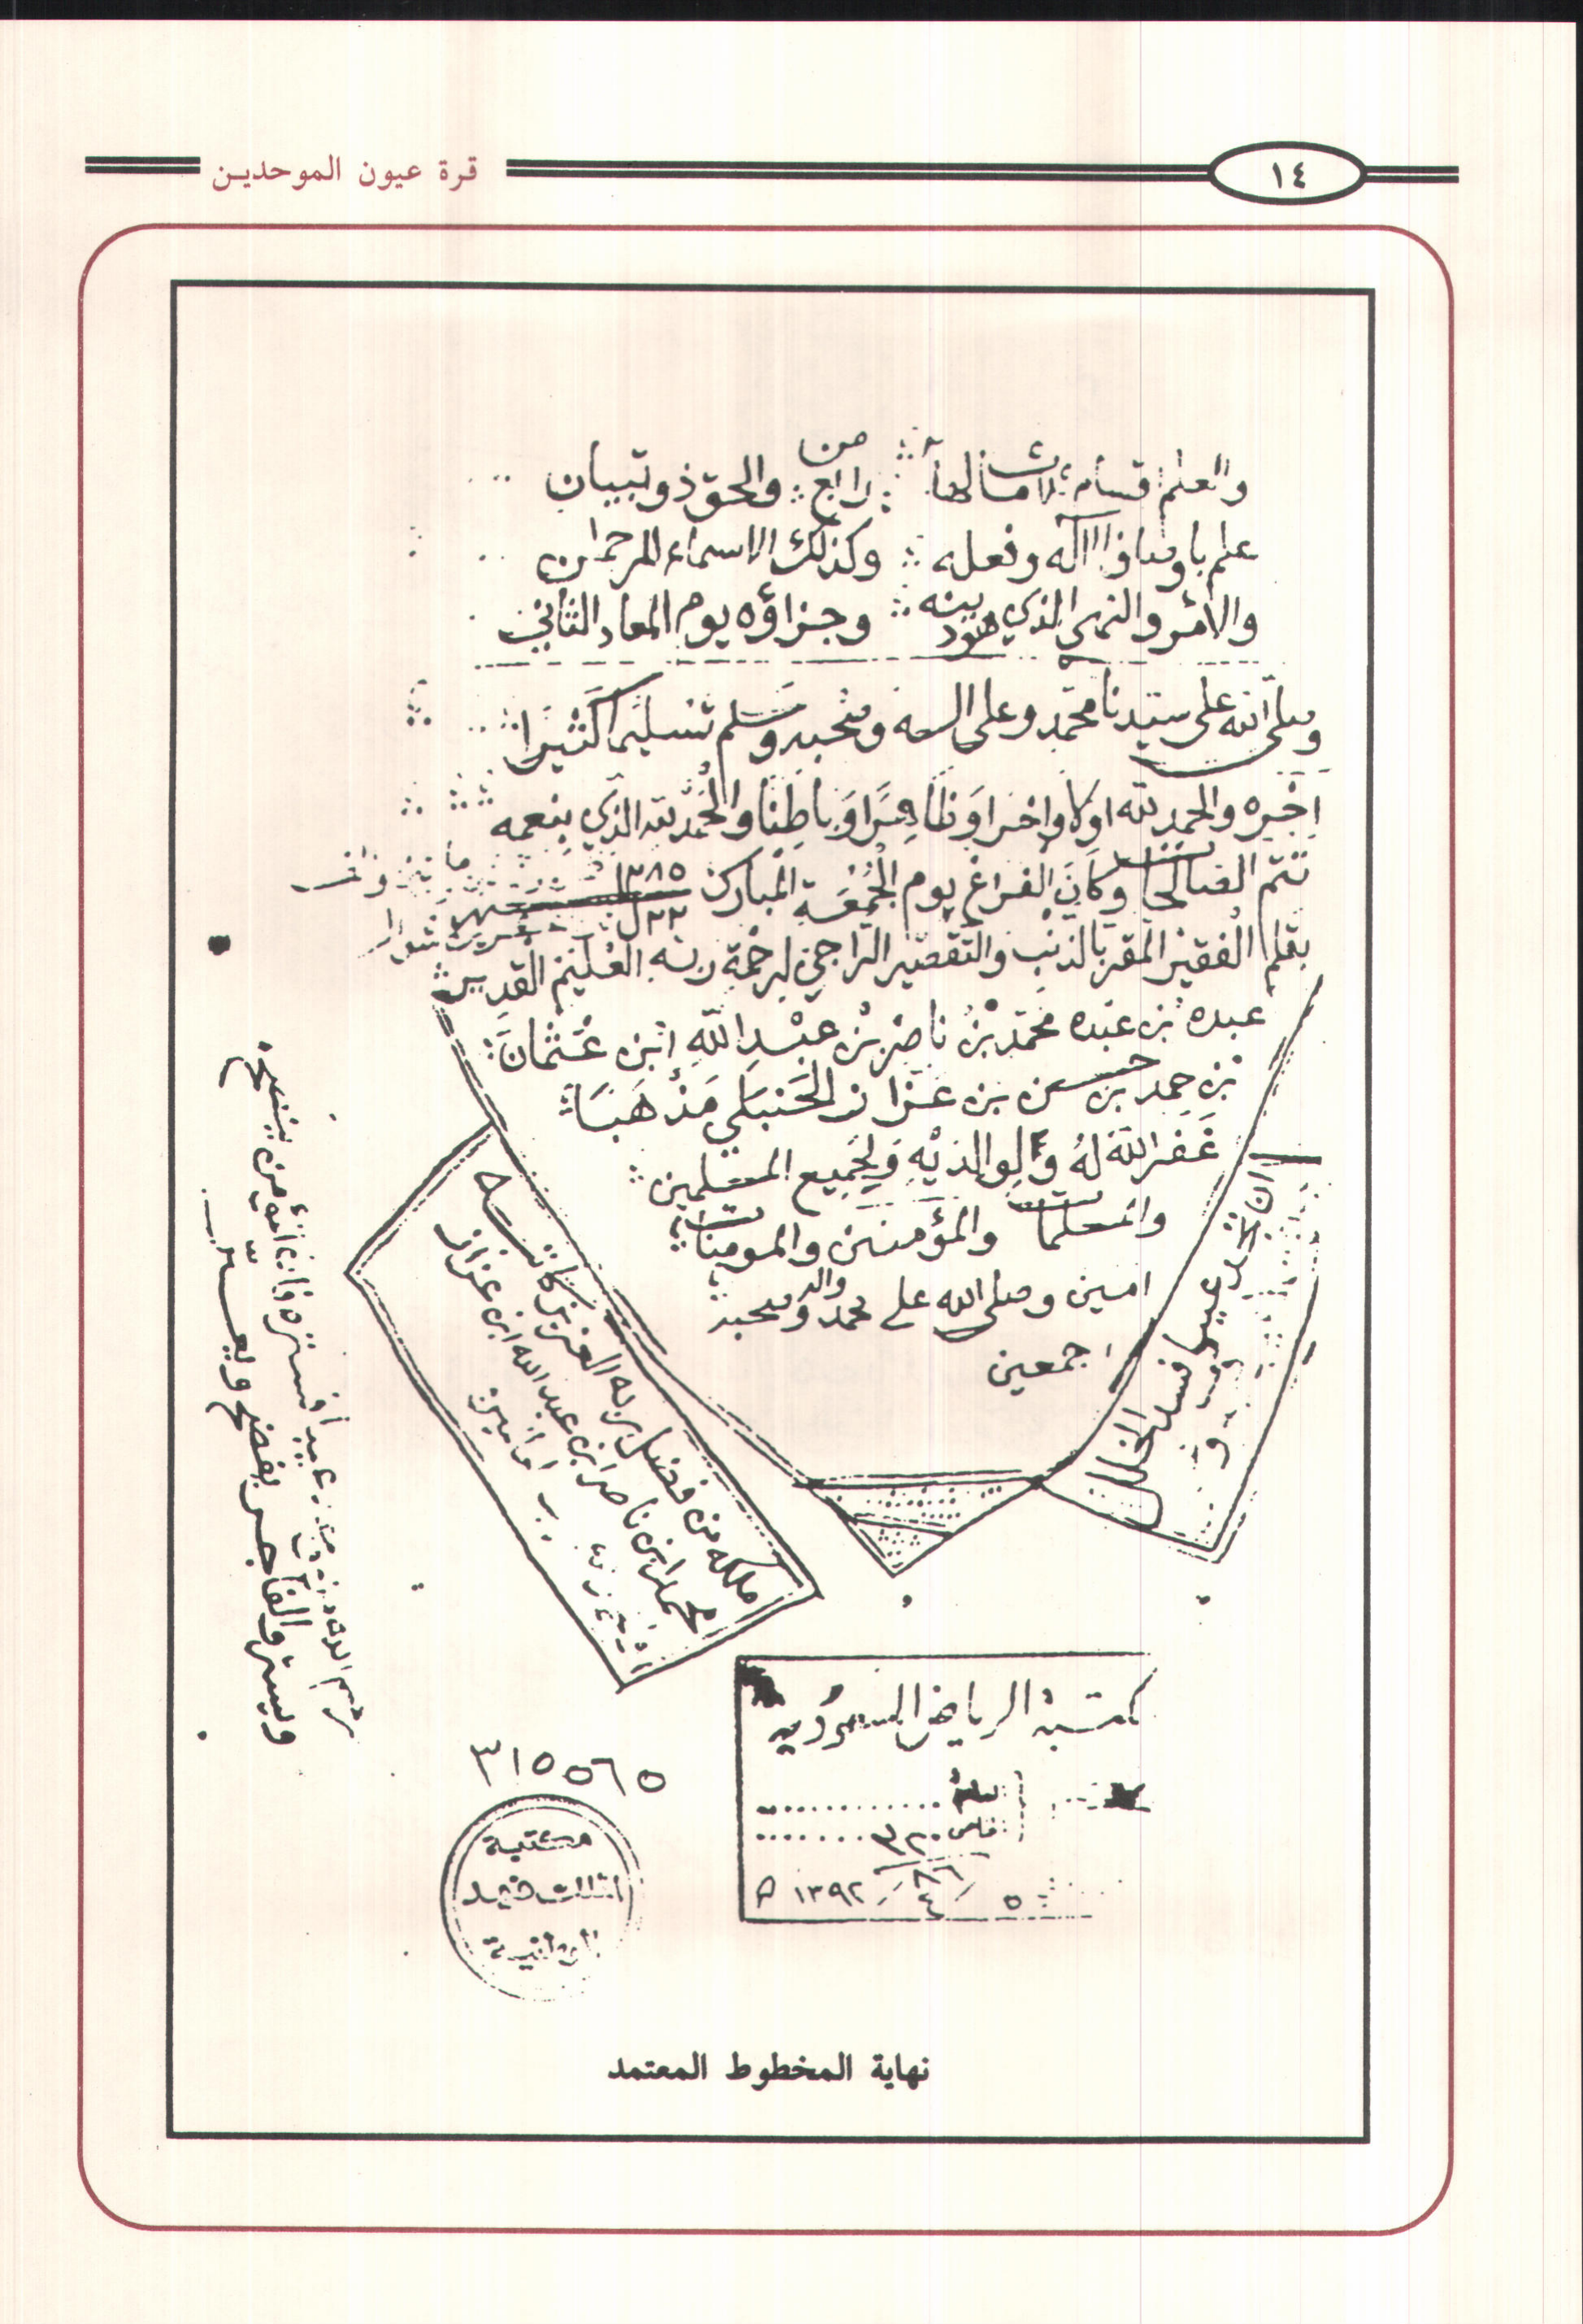 ١٤
قرة عيون الموحدين
والعلم قسام ثلاث مالها من رابع والحق ذو تبيان
علم باوصاف الاله وفعله وكذلك الاسماء للرحمان
والأمر والنهي الذي هود بينه وجزاؤه يوم المعاد الثاني
وصلى الله على سيدنا محمد وعلى اله وصحبه وسلم تسليما كثيرا
اخره والحمد لله اولا واخرا وظاهرا وباطنا والحمد لله الذي بنعمه
تتم الصالحات وكان الفراغ يوم الجمعة المبارك ١٣٨٥
٢٢ ل
بقلم الفقير المقر بالذنب والتقصير الراجي لرحمة ربه العليم القدير
عبده بن عبده محمد بن ناصر بن عبد الله ابن عثمان
بن حمد بن حسين بن عزاز الحنبلي مذهبا
غفر الله له ولوالديه ولجميع المسلمين
والمسلمات والمؤمنين والمومنات
امين وصلى الله على محمد واله وصحبه
اجمعين
ان تجد عيبا فسد الخلل
ملكه من فضل ربه العزيز كاتبه
محمد ابن ناصر ابن عبد الله ابن عزاز
امين
ويستر والفاجر يفضح ويعير
مكتبة الرياض السعودية
خاص ٣٢٠
٥ / ٤ / ١٣٩٢ ه
٣١٥٥٦٥
مكتبة
الملك فهد
الوطنية
نهاية المخطوط المعتمد